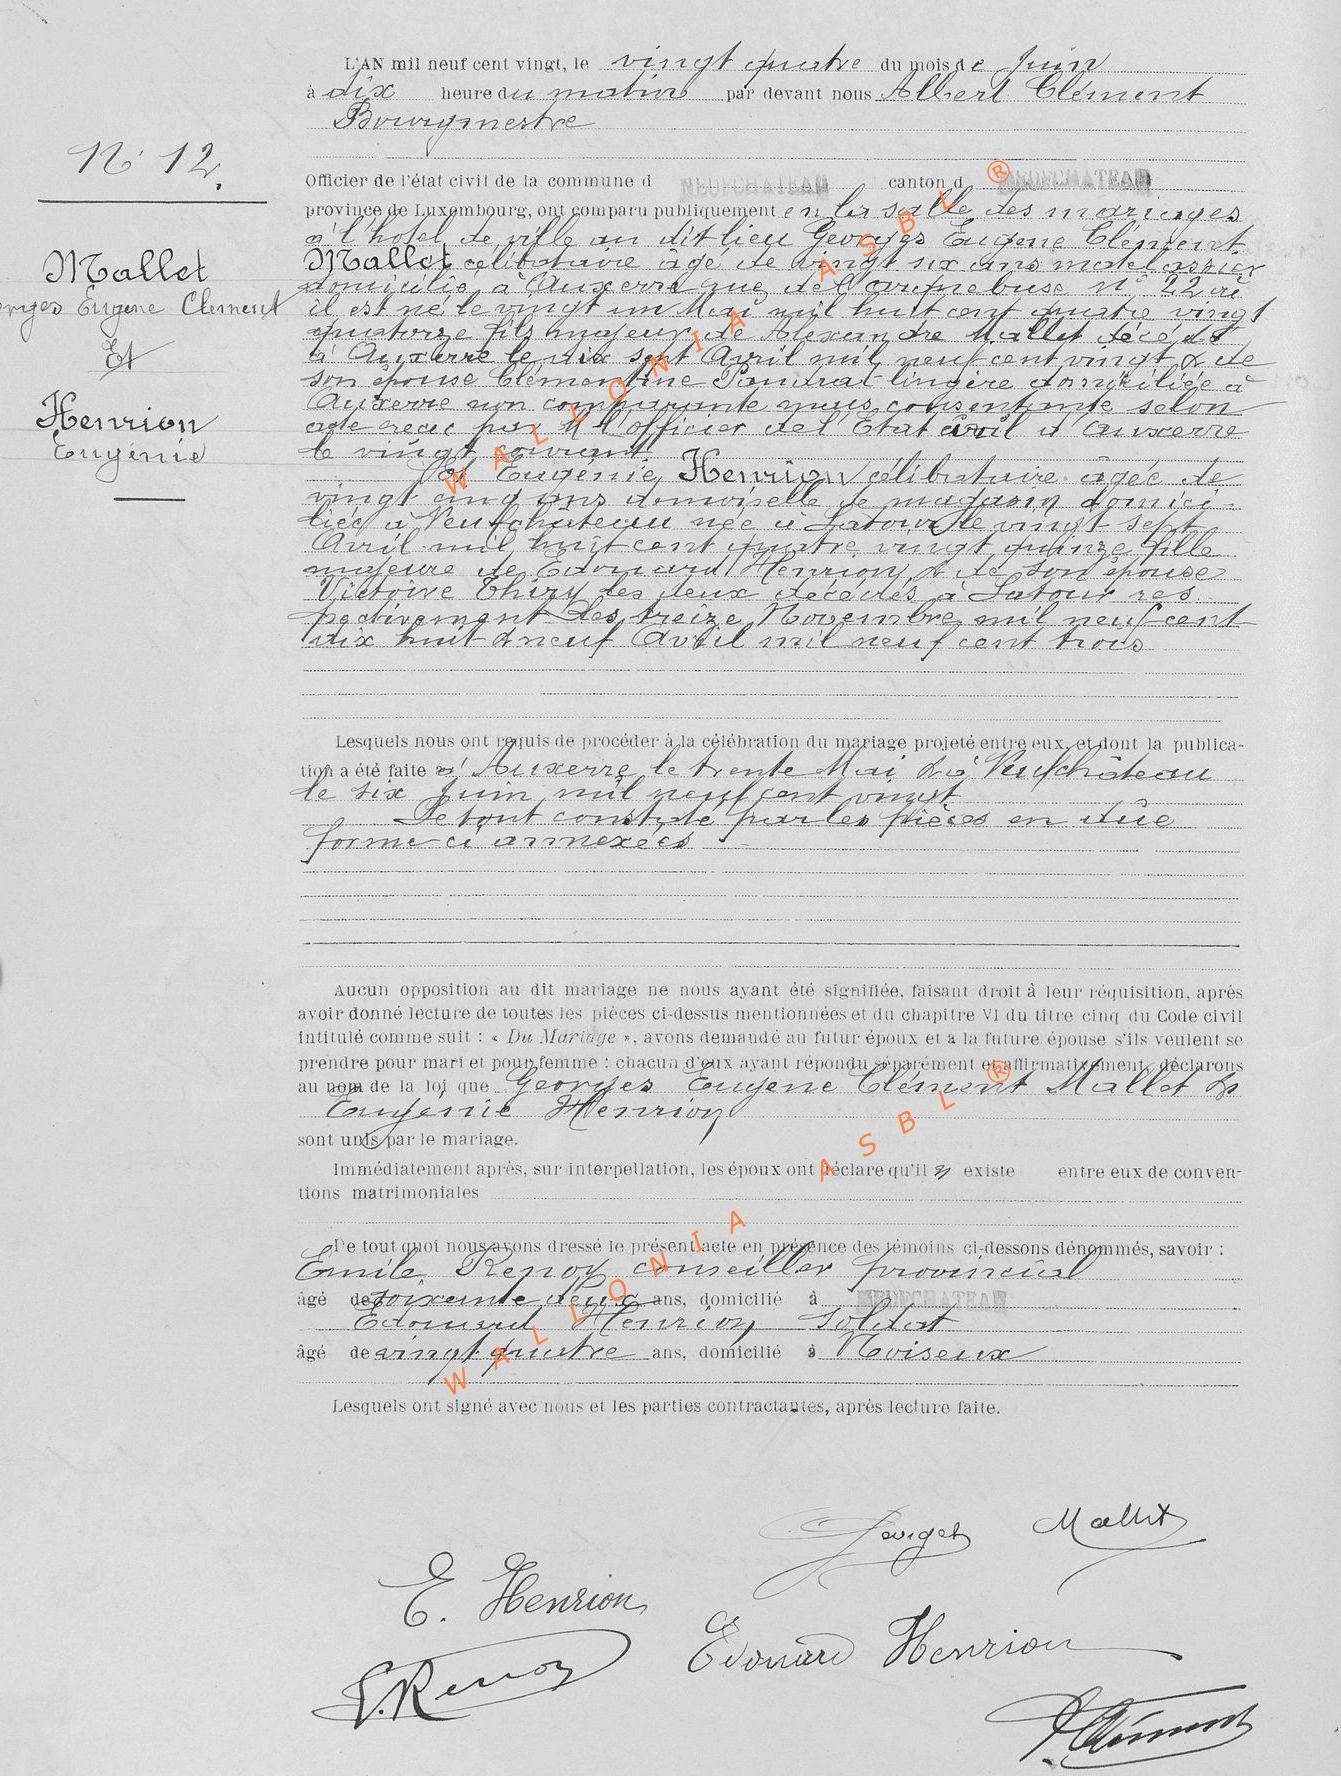 L'AN mil neuf cent vingt, le vingt quatre du mois de Juin
à dix heure du matin par devant nous Albert Clément
Bourgmestre
N° 12.
Officier de l'état civil de la commune d NEUFCHATEAU canton d NEUFCHATEAU
province de Luxembourg, ont comparu publiquement en la salle des mariages
à l'hôtel de ville au dit lieu Georges Eugène Clément
Mallet célibataire âgé de vingt six ans matelassier
domicilié à Auxerre rue de l'arquebuse N° 22 où
il est né le vingt un Mai mil huit cent quatre vingt
quatorze fils majeur de Alexandre Mallet décédé
à Auxerre le dix sept Avril mil neuf cent vingt & de
son épouse Clémentine lingère domiciliée à
Auxerre non comparante mais consentante selon
acte reçu par M l'officier de l'Etat civil à Auxerre
le vingt courant
Mallet
Georges Eugène Clément
Et
Henrion
Eugénie
Et Eugénie Henrion célibataire âgée de
vingt cinq ans demoiselle de magasin domici-
liée à Neufchâteau née à Latour le vingt sept
Avril mil huit cent quatre vingt quinze fille
majeure de Edouard Henrion & de son épouse
Victoire Thiry les deux décédés à Latour res-
pectivement les treize Novembre mil neuf cent
dix huit & neuf Avril mil neuf cent trois
Lesquels nous ont requis de procéder à la célébration du mariage projeté entre eux, et dont la publica-
tion a été faite à Auxerre le trente Mai & à Neufchâteau
le six Juin mil neuf cent vingt
Le tout constaté par les pièces en dûe
forme ci annexées
Aucun opposition au dit mariage ne nous ayant été signifiée, faisant droit à leur réquisition, après
avoir donné lecture de toutes les pièces ci-dessus mentionnées et du chapitre VI du titre cinq du Code civil
intitulé comme suit : « Du Mariage », avons demandé au futur époux et à la future épouse s'ils veulent se
prendre pour mari et pour femme : chacun d'eux ayant répondu séparément et affirmativement, déclarons
au nom de la loi que Georges Eugene Clément Mallet &
Eugénie Henrion
sont unis par le mariage.
Immédiatement après, sur interpellation, les époux ont déclare qu'il n existe entre eux de conven-
tions matrimoniales
De tout quoi nous avons dressé le présent acte en présence des témoins ci-dessons dénommés, savoir :
Emile Renoy conseiller provincial
âgé de soixante deux ans, domicilié à NEUFCHATEAU
Edouard Henrion soldat
âgé de vingt quatre ans, domicilié à Noiseux
Lesquels ont signé avec nous et les parties contractantes, après lecture faite.
Georges Mallet
E. Henrion
Edouard Henrion
E. Renoy
A. Clément
WALLONIA ASBL ®
WALLONIA ASBL ®